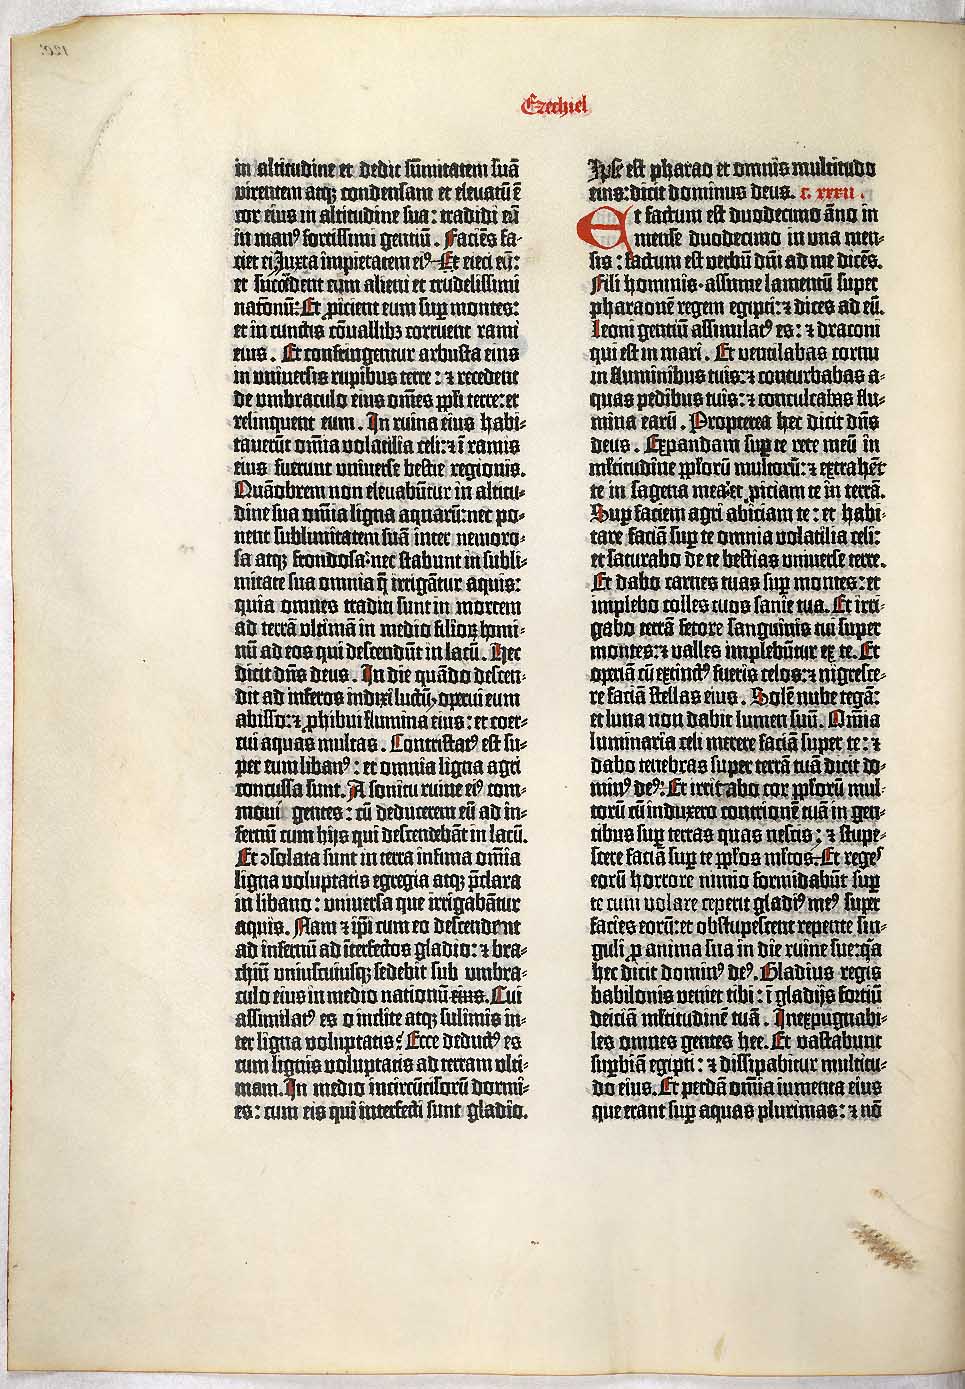 Ezechiel
in altitudine et dedit sũmitatem suã
virentem atqꝫ condensam et eleuatũ ẽ
cor eius in altitudine sua: tradidi eũ
in manꝰ fortissimi gentiũ. Faciẽs fa-
ciet ei Juxta impietatem eiꝰ Et eieci eũ:
et succẽdent eum alieni et crudelissimi
natõnũ: Et ꝓicient eum suꝑ montes:
et in cunctis cõuallibꝫ corruent rami
eius. Et confringentur arbusta eius
in vniuersis rupibus terre: ⁊ recedent
de vmbraculo eius om̃es ppl̃i terre: et
relinquent eum. In ruina eius habi-
tauerũt om̃ia volatilia celi: ⁊ ĩ ramis
eius fuerunt vniuerse bestie regionis.
Quãobrem non eleuabũtur in altitu-
dine sua om̃ia ligna aquarũ: nec po-
nent sublimitatem suã inter nemoro-
sa atqꝫ frondosa: nec stabunt in subli-
mitate sua omnia q̃ irrigãtur aquis:
quia omnes traditi sunt in mortem
ad terrã vltimã in medio filioꝝ homi-
nũ ad eos qui descendũt in lacũ. Hec
dicit dñs deus. In die quãdo descen-
dit ad inferos induxi luctũ, operui eum
abisso: ⁊ ꝓhibui flumina eius: et coer-
cui aquas multas. Contristatꝰ est su-
per eum libanꝰ: et omnia ligna agri
concussa sunt. A sonitu ruine eiꝰ com-
moui gentes: cũ deducerem eũ ad in-
fernũ cum hijs qui descendebãt in lacũ.
Et ↄsolata sunt in terra infima om̃ia
ligna voluptatis egregia atqꝫ p̃clara
in libano: vniuersa que irrigabãtur
aquis. Nam ⁊ ip̃i cum eo descendent
ad infernũ ad ĩterfectos gladio: ⁊ bra-
chiũ vniuscuiusqꝫ sedebit sub vmbra-
culo eius in medio nationũ eius. Cui
assimilatꝰ es o inclite atqꝫ sulimis in-
ter ligna voluptatis? Ecce deductꝰ es
cum lignis voluptatis ad terram vlti-
mam. In medio incircũcisorũ dormi-
es: cum eis qui interfecti sunt gladio.
Ipse est pharao et omnis multitudo
eius: dicit dominus deus. c. xxxii.
Et factum est duodecimo ãno in
mense duodecimo in vna men-
sis: factum est verbũ dñi ad me dicẽs.
Fili hominis assume lamentũ super
pharaonẽ regem egipti: ⁊ dices ad eũ.
Leoni gentiũ assimilatꝰ es: ⁊ draconi
qui est in mari. Et ventilabas cornu
in fluminibus tuis: ⁊ conturbabas a-
quas pedibus tuis: ⁊ conculcabas flu-
mina earũ. Propterea hec dicit dñs
deus. Expandam suꝑ te rete meũ in
ml̃titudine ppl̃orũ multorũ: ⁊ extrahẽt
te in sagena mea: et ꝓiciam te in terrã.
Suꝑ faciem agri abiciam te: et habi-
tare faciã suꝑ te omnia volatilia celi:
et saturabo de te bestias vniuerse terre.
Et dabo carnes tuas suꝑ montes: et
implebo colles tuos sanie tua. Et irri-
gabo terrã fetore sanguinis tui super
montes: ⁊ valles implebũtur ex te. Et
operiã cũ extinctꝰ fueris celos: ⁊ nigresce-
re faciã stellas eius. Solẽ nube tegã:
et luna non dabit lumen suũ. Om̃ia
luminaria celi merere faciã super te: ⁊
dabo tenebras super terrã tuã dicit do-
minꝰ deꝰ. Et irritabo cor ppl̃orũ mul-
torũ cũ induxero contricionẽ tuã in gen-
tibus suꝑ terras quas nescis: ⁊ stupe-
scere faciã suꝑ te ppl̃os ml̃tos. Et reges
eorũ horrore nimio formidabũt suꝑ
te cum volare ceperit gladiꝰ meꝰ super
facies eorũ: et obstupescent repente sin-
guli ꝓ anima sua in die ruine sue: qã
hec dicit dominꝰ deꝰ. Gladius regis
babilonis veniet tibi: ĩ gladijs fortiũ
deiciã ml̃titudinẽ tuã. Inexpugnabi-
les omnes gentes hee. Et vastabunt
suꝑbiãm egipti: ⁊ dissipabitur multitu-
do eius. Et perdã om̃ia iumenta eius
que erant suꝑ aquas plurimas: ⁊ nõ